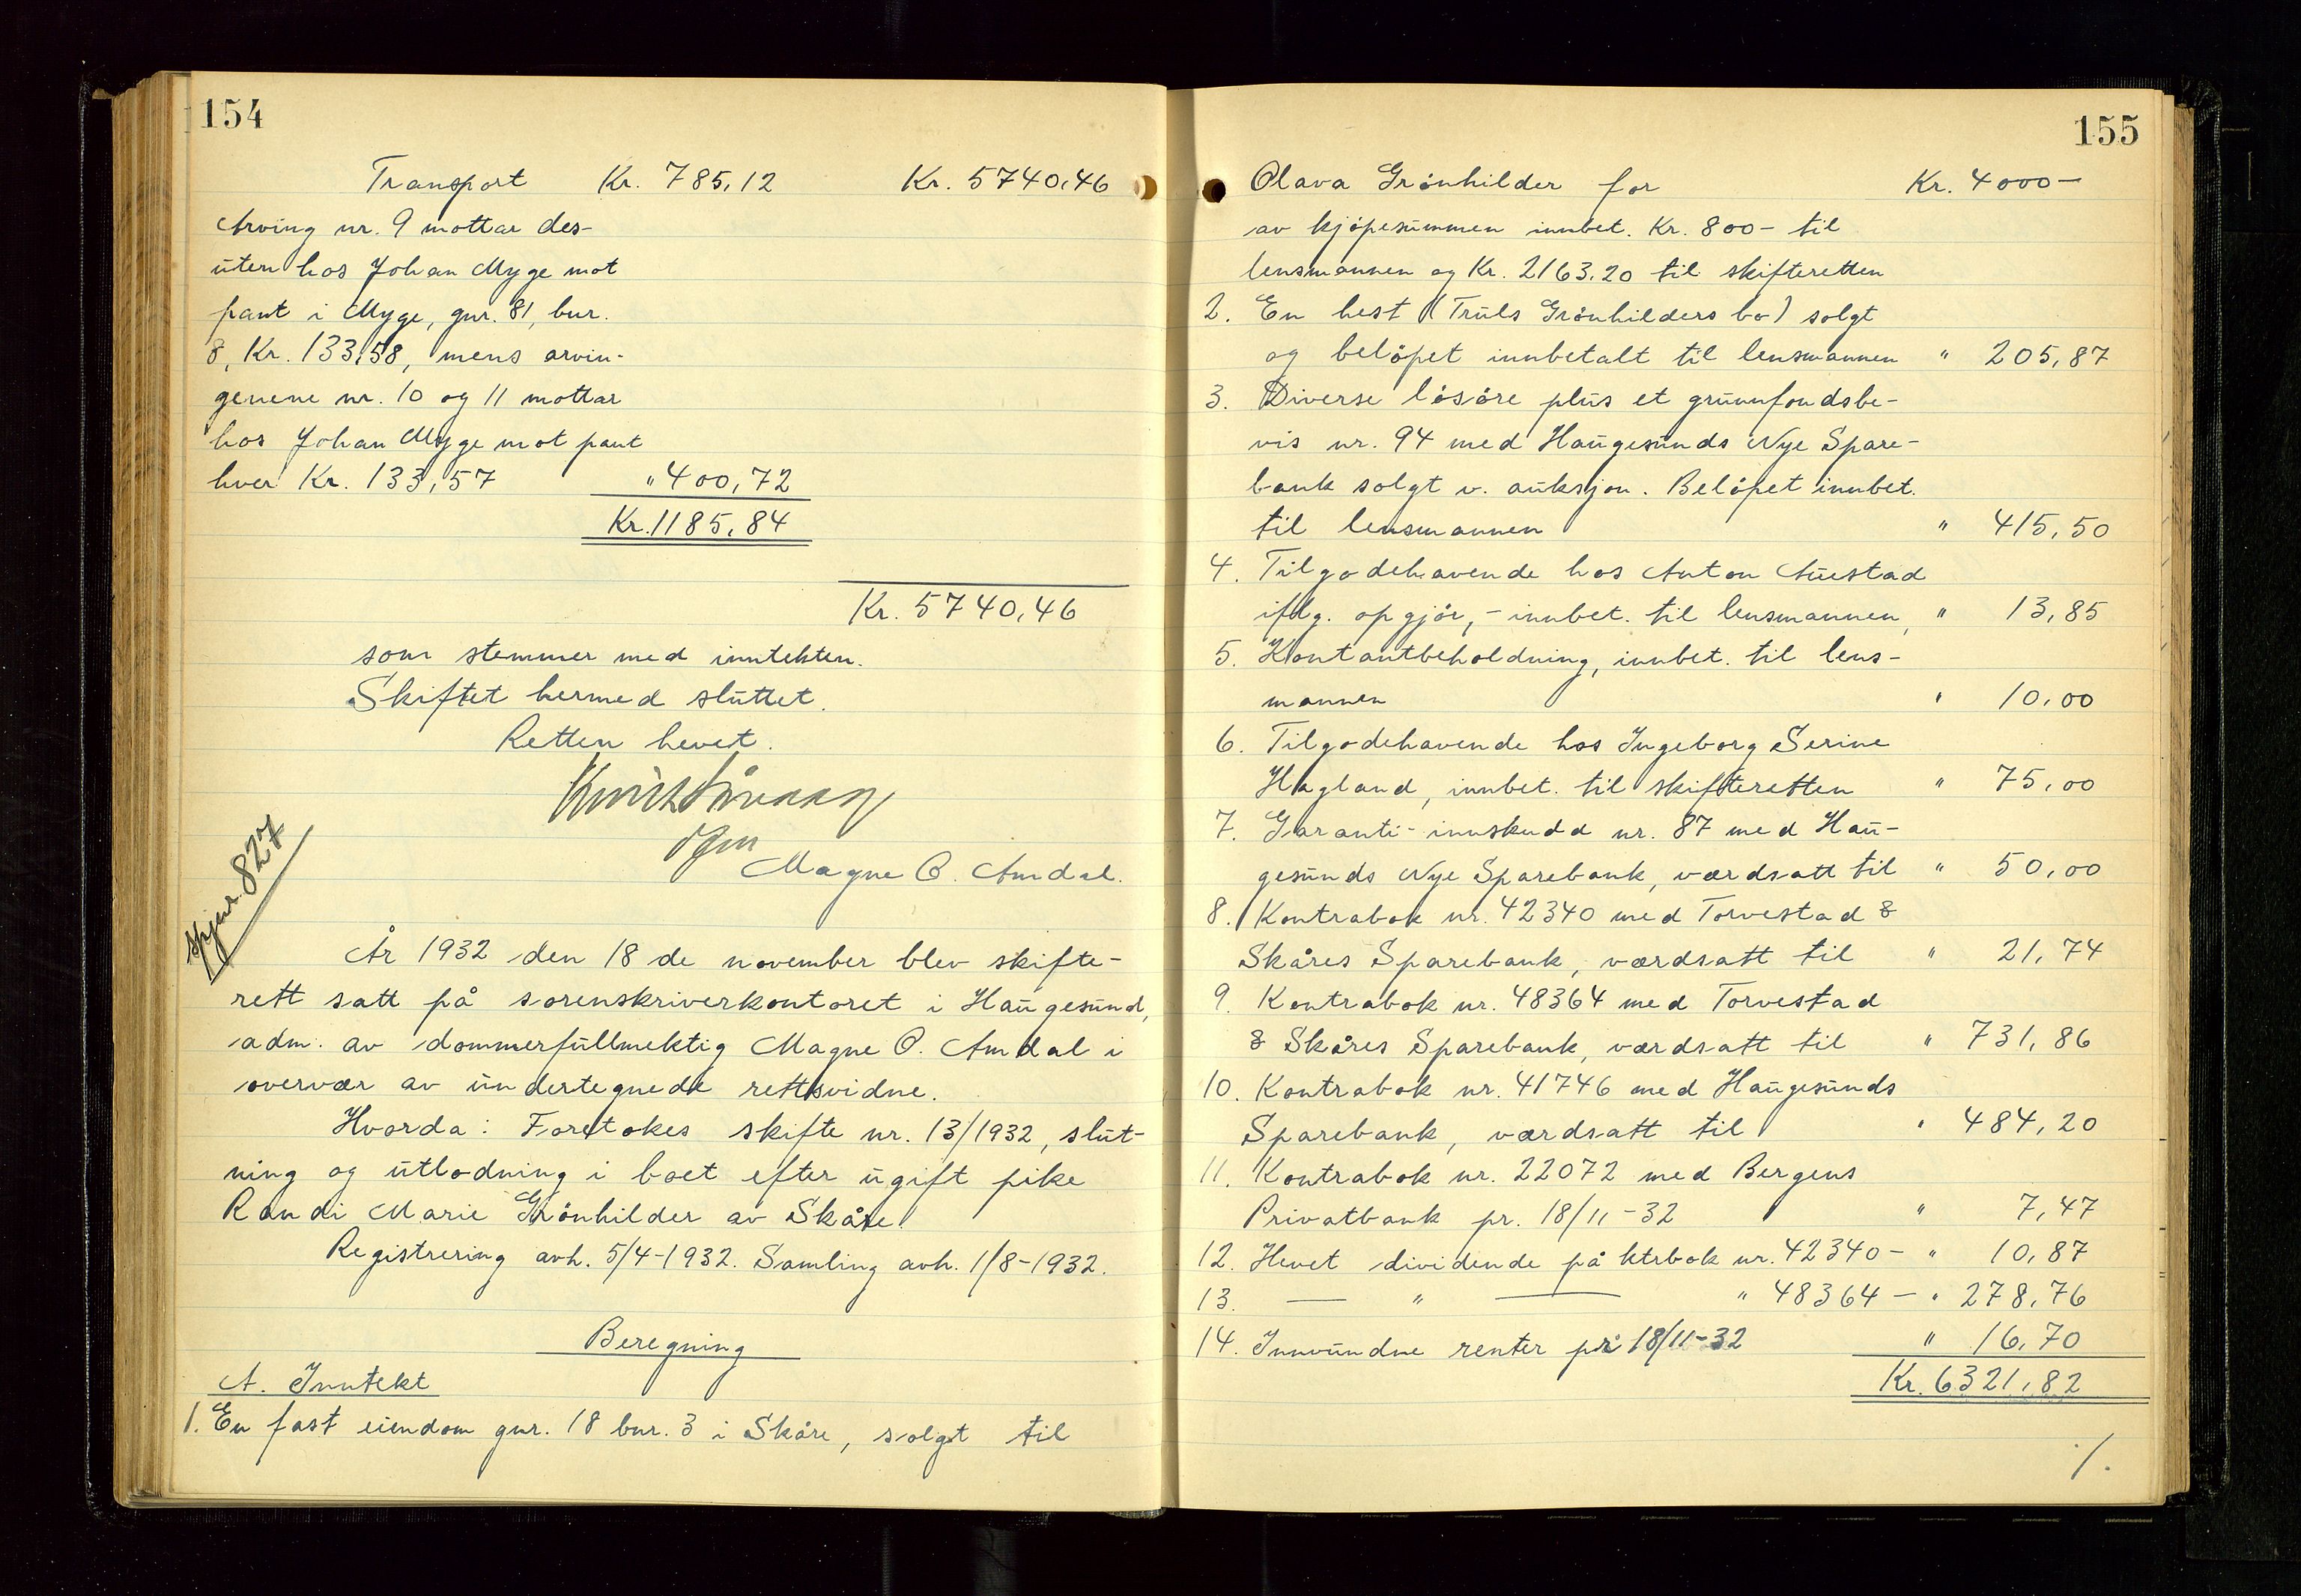 154
Transport Kr. 785,12 Kr. 5740,46
Arving nr. 9 mottar des-
uten hos Johan Myge mot
pant i Myge, gnr. 81, bnr.
8, Kr. 133,58, mens arvin-
genene nr. 10 og 11 mottar
hos Johan Myge mot pant
hver Kr. 133,57 " 400,72
Kr. 1185,84
Kr. 5740,46
som stemmer med inntekten.
Skiftet hermed sluttet.
Retten hevet.
Magne O. Amdal.
827
År 1932 den 18 de november blev skifte-
rett satt på sorenskriverkontoret i Haugesund,
adm. av dommerfullmektig Magne O. Amdal i
overvær av undertegnede rettsvidne.
Hvorda: Foretokes skifte nr. 13/1932, slut-
ning og utlodning i boet efter ugift pike
Randi Marie Grönhilder av Skåre.
Registrering avh. 5/4-1932. Samling avh. 1/8-1932.
Beregning
A. Inntekt
1. En fast eiendom gnr. 18 bnr. 3 i Skåre, solgt til
155
Olava Grönhilder for Kr. 4000-
av kjöpesummen innbet. Kr. 800- til
lensmannen og Kr. 2163,20 til skifteretten
2. En hest (Truls Grönhilders bo) solgt
og belöpet innbetalt til lensmannen " 205,87
3. Diverse lösöre plus et grunnfondsbe-
vis nr. 94 med Haugesunds Nye Spare-
bank solgt v. auksjon. Belöpet innbet.
til lensmannen " 415,50
4. Tilgodehavende hos Anton Auestad
iflg. opgjör, - innbet. til lensmannen, " 13,85
5. Kontantbeholdning, innbet. til lens-
mannen " 10,00
6. Tilgodehavende hos Ingeborg Serine
Hagland, innbet. til skifteretten " 75,00
7. Garanti-innskudd nr. 87 med Hau-
gesunds Nye Sparebank, værdsatt til " 50,00
8. Kontrabok nr. 42340 med Torvestad &
Skåres Sparebank, værdsatt til " 21,74
9. Kontrabok nr. 48364 med Torvestad
& Skåres Sparebank, værdsatt til " 731,86
10. Kontrabok nr. 41746 med Haugesunds
Sparebank, værdsatt til " 484,20
11. Kontrabok nr. 22072 med Bergens
Privatbank pr. 18/11-32 " 7,47
12. Hevet dividende på ktrbok nr. 42340- " 10,87
13. — " — " 48364- " 278,76
14. Innvundne renter pr. 18/11-32 " 16,70
Kr. 6321,82
./.